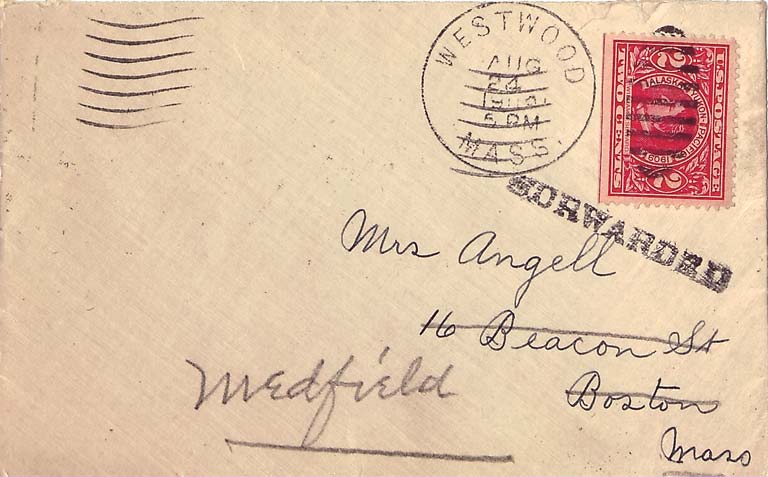 WESTWOOD
AUG
24
5 PM
MASS.
U.S. POSTAGE
2
ALASKA YUKON PACIFIC
1909
2
TWO CENTS
FORWARDED
Mrs Angell
16 Beacon St
Boston
Mass
Medfield